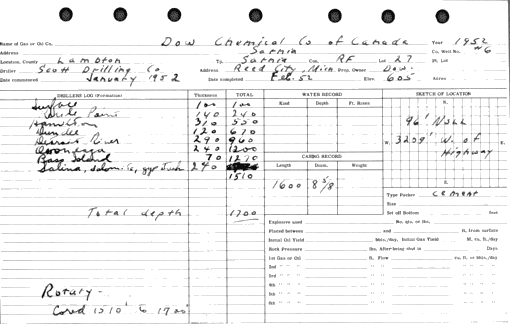 Name of Gas or Oil Co. Dow Chemical Co of Canada Year 1952
Address Sarnia Co. Well No. #6
Location, County Lambton Tp. Sarnia Con. RF Lot 27 Pt. Lot
Driller Scott Drilling Co Address Reed City, Mich Prop. Owner Dow.
Date commenced January 1952 Date completed Feb. 52 Elev. 605 Acres
DRILLERS LOG (Formation) Thickness TOTAL WATER RECORD SKETCH OF LOCATION
Kind Depth Ft. N.
Surface 100 100
140 240
Hamilton 310 550
Dundee 120 670
Detroit River 290 960
240 1200
Bass Island 70 1270
Salina, 240
1510
96'
W. 3209' W. of E.
Highway
S.
CASING RECORD
Length Diam. Weight
1600 8 5/8
Type Packer CEMENT
Size
Set off Bottom feet
Total depth 1700
Explosive used No. qts. or lbs.
Placed between and ft. from surface
Initial Oil Yield bbls./day, Initial Gas Yield M. cu. ft./day
Rock Pressure lbs. After being shut in Days
1st Gas or Oil ft. Flow cu. ft. or bbls./day
2nd " " " "
3rd " " " "
4th " " " "
5th " " " "
Rotary -
Cored 1510' to 1700'